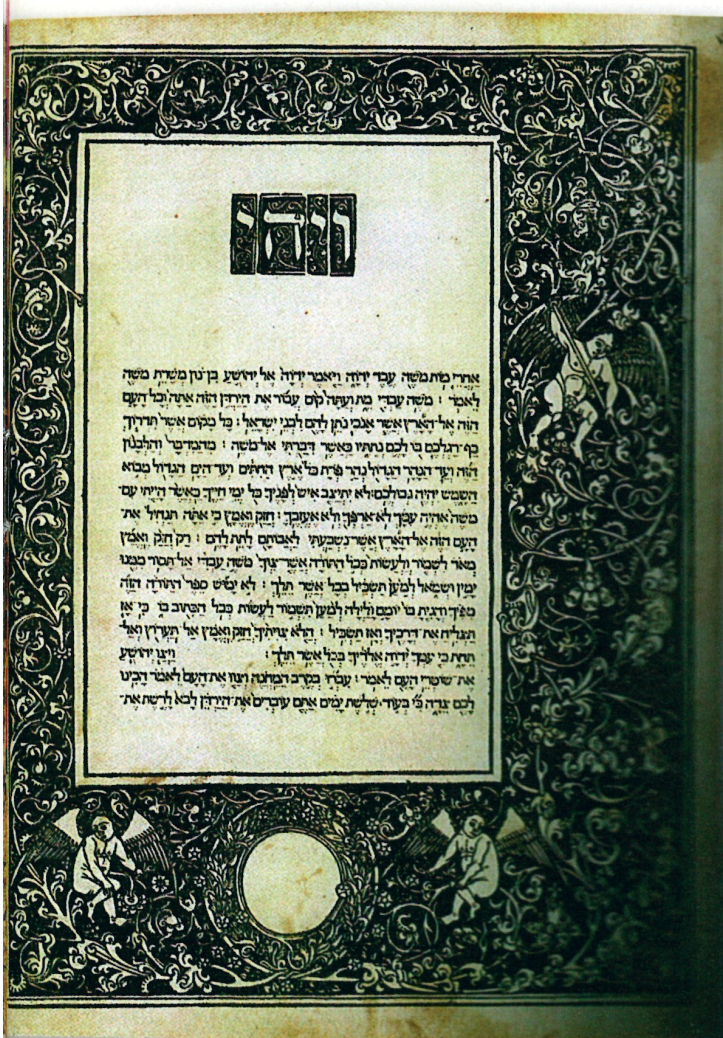 ויהי
אחרי מות משה עבד יהוה ויאמר יהוה אל יהושע בן־נון משרת משה
לאמר : משה עבדי מת ועתה קום עבור את הירדן הזה אתה וכל העם
הזה אל־הארץ אשר אנכי נתן להם לבני ישראל : כל מקום אשר תדרוך
כף־רגלכם בו לכם נתתיו כאשר דברתי אל־משה : מהמדבר והלבנון
הזה ועד הנהר הגדול נהר פרת כל ארץ החתים ועד הים הגדול מבוא
השמש יהיה גבולכם : לא יתיצב איש לפניך כל ימי חייך כאשר הייתי עם
משה אהיה עמך לא־ארפך ולא אעזבך : חזק ואמץ כי אתה תנחיל את־
העם הזה אל־הארץ אשר־נשבעתי לאבותם לתת להם : רק חזק ואמץ
מאד לשמור ולעשות ככל התורה אשר־צוך משה עבדי אל־תסור ממנו
ימין ושמאל למען תשכיל בכל אשר תלך : לא ימיש ספר התורה הזה
מפיך והגית בו יומם ולילה למען תשמור לעשות ככל הכתוב בו כי אז
תצליח את־דרכיך ואז תשכיל : הלא צויתיך חזק ואמץ אל תערוץ ואל־
תחת כי עמך יהוה אלהיך בכל אשר תלך : ויצו יהושע
את־שוטרי העם לאמר : עברו בקרב המחנה וצוו את־העם לאמר הכינו
לכם צדה כי בעוד שלשת ימים אתם עוברים את־הירדן לבא לרשת את־